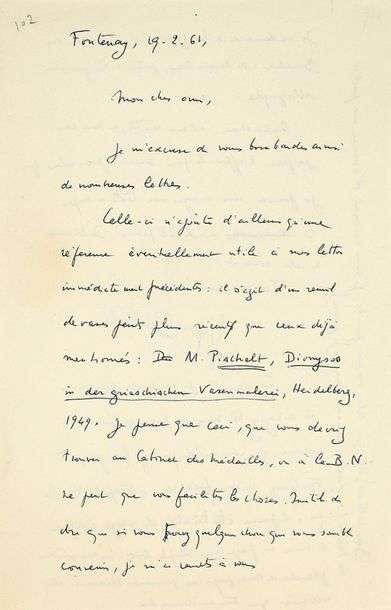 102
Fontenay, 19-2-61,
Mon cher ami,
Je m'excuse de vous bombarder ainsi
de nombreuses lettres.
Celle-ci n'ajoute d'ailleurs qu'une
référence éventuellement utile à mes lettres
immédiatement précédentes : il s'agit d'un recueil
de vases peints plus récent que ceux déjà
mentionnés : M. Pischelt, Dionysos
in der griechischen Vasenmalerei, Heidelberg,
1949. Je pense que ceci, que vous devriez
trouver au Cabinet des Médailles, ou à la B.N.
ne peut que vous faciliter les choses. Inutile de
dire que si vous trouvez quelque chose qui vous semble
convenir, je m'en remets à vous